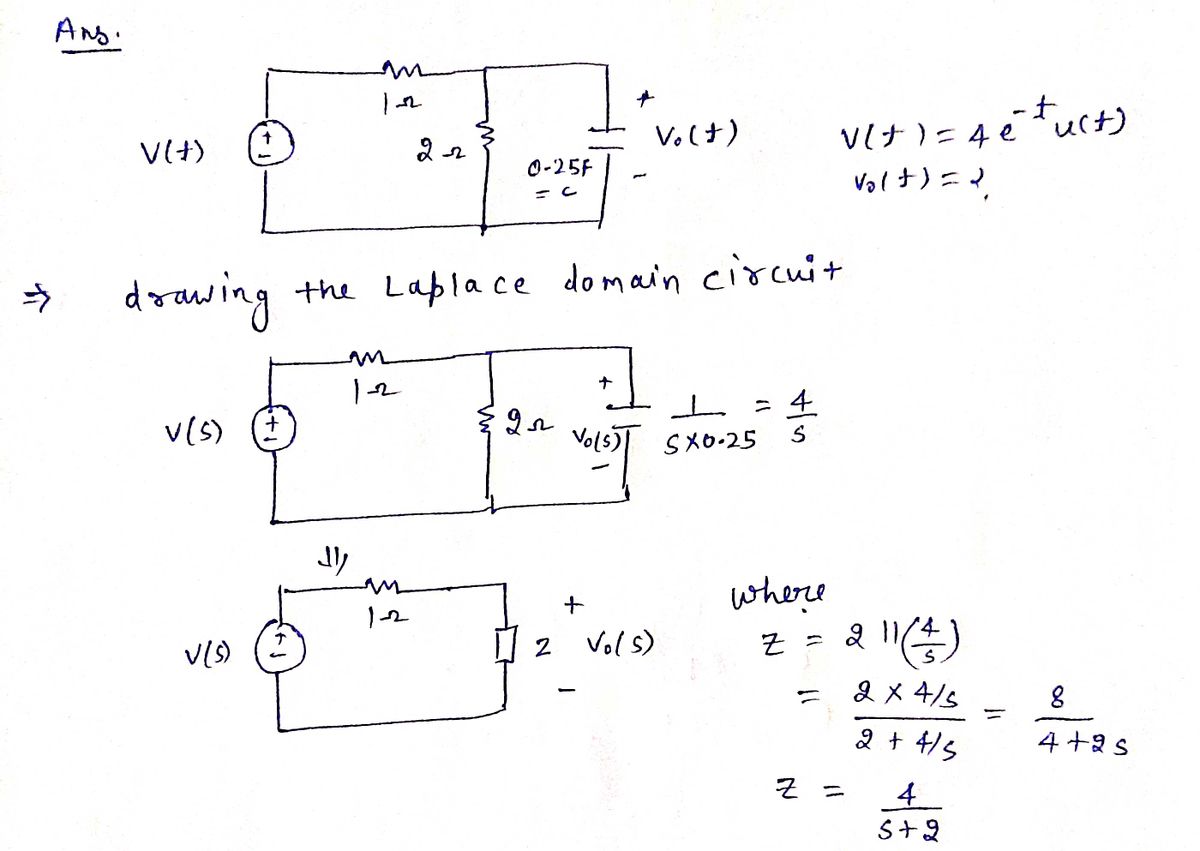 Ans.
1Ω
V(t) + - 2Ω 0.25F = C + Vo(t) -
V(t) = 4 e^-t u(t)
Vo(t) = ?
⇒ drawing the Laplace domain circuit
1Ω
V(s) + - 2Ω + Vo(s) - 1/(S×0.25) = 4/S
⇓
1Ω
V(s) + - Z + Vo(s) -
where
Z = 2 || (4/S)
= (2 × 4/S)/(2 + 4/S) = 8/(4+2S)
Z = 4/(S+2)